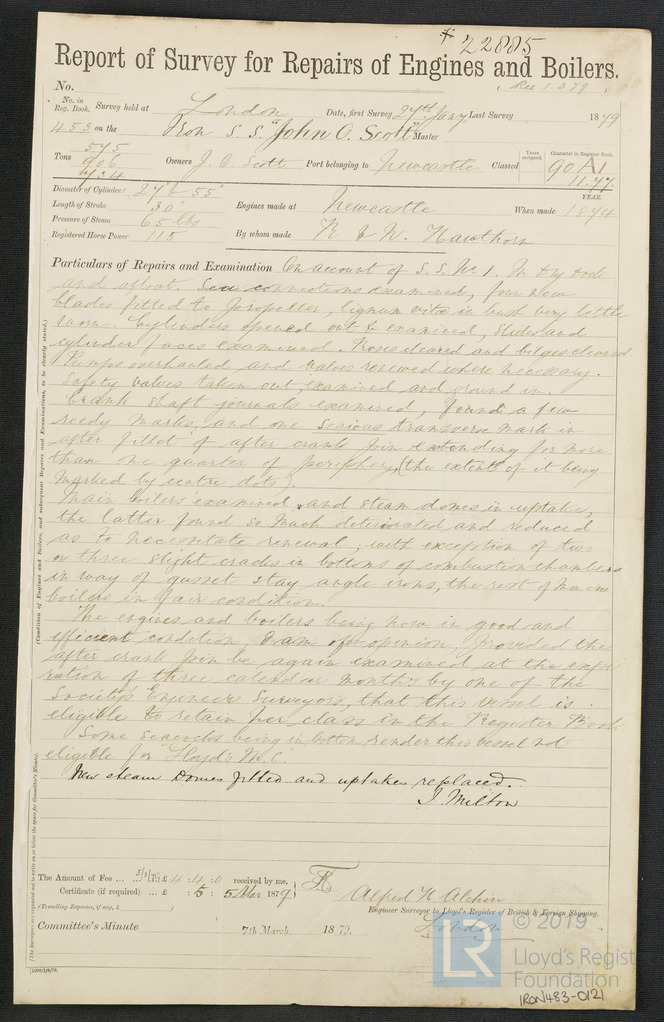 * 22885
Report of Survey for Repairs of Engines and Boilers.
Rec 1.3.79
No.
No. in Reg. Book. Survey held at London Date, first Survey 27th Jany Last Survey 1879
453 on the Iron S.S. "John O. Scott" Master
Tons 575 906 Owners J. O. Scott Port belonging to Newcastle Classed Years assigned. Character in Register Book. 90 A1 11.77.
YEAR.
Diameter of Cylinder 27 & 55
Length of Stroke 30" Engines made at Newcastle When made 1874
Pressure of Steam 65 lbs
Registered Horse Power 115 By whom made R & W. Hawthorn
Particulars of Repairs and Examination On account of S.S. No 1. In dry dock
and afloat. Sea connections examined, four new
blades fitted to propeller, lignum vitæ in bush very little
worn. Cylinders opened out & examined, slides and
cylinder faces examined. Roses cleared and bilges cleaned
Pumps overhauled and valves renewed where necessary.
Safety valves taken out, examined and ground in.
Crank shaft journals examined, found a few
reedy marks, and one serious transverse mark in
after fillet of after crank pin extending for more
than one quarter of periphery, (the extent of it being
marked by centre dots).
Main boilers examined and steam domes in uptake,
the latter found so much deteriorated and reduced
as to necessitate renewal, with exception of two
or three slight cracks in bottoms of combustion chambers
in way of gusset stay angle irons, the rest of main
boilers in fair condition.
The engines and boilers being now in good and
efficient condition, I am of opinion, provided the
after crank pin be again examined at the expi-
ration of three calendar months by one of the
Society's Engineer Surveyors, that this vessel is
eligible to retain her class in the Register Book
Some seacocks being in bottom render this vessel not
eligible for Lloyd's M.C.
New steam domes fitted and uptakes replaced.
J. Milton
The Amount of Fee ... £ 4 : 4 : 0 received by me,
Certificate (if required) ... £ : 5 : 5 Mar 1879
(Travelling Expenses, if any, £ )
Alfred H. Alchin
Engineer Surveyor to Lloyd's Register of British & Foreign Shipping.
London
Committee's Minute 7th March 1879.
(Condition of Engines and Boilers, and subsequent Repairs and Examinations, to be clearly stated.)
(The Surveyors are requested not to write on or below the space for Committee's Minute).
LR © 2019
Lloyd's Register
Foundation
IRON483-0121